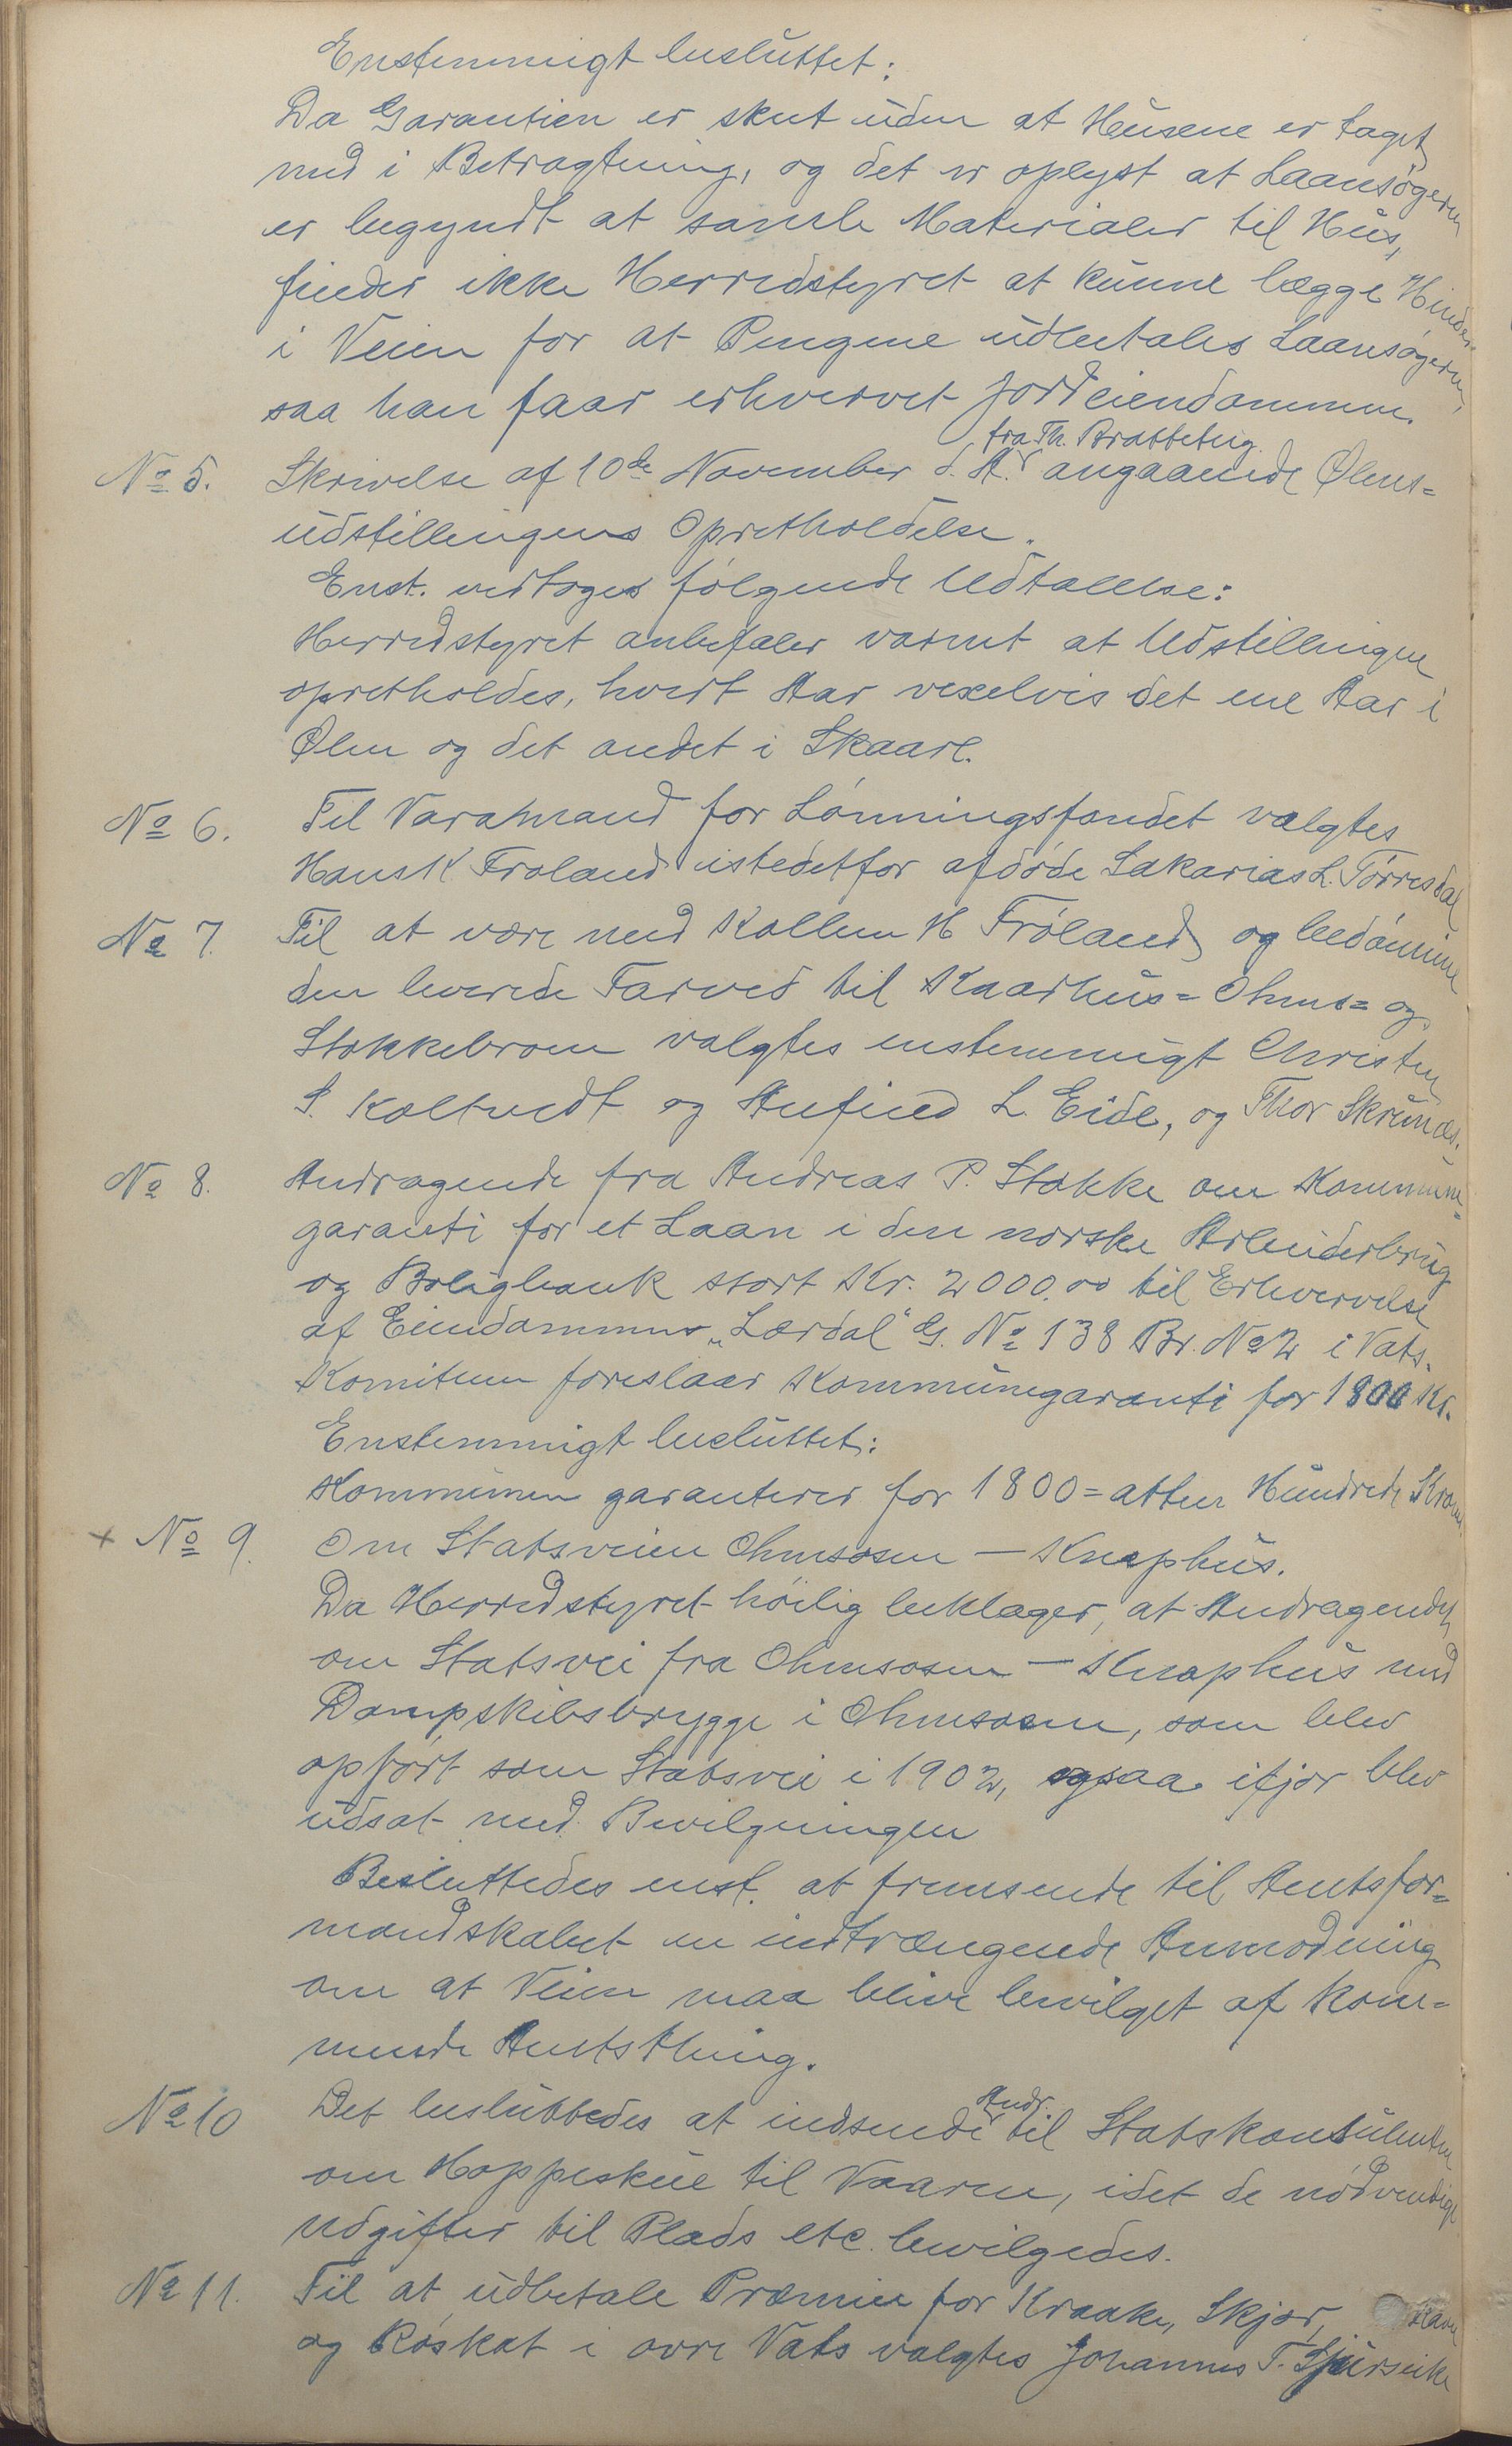 Enstemmigt besluttet:
Da Garantien er skeet uden at Husene er taget
med i Betragtning, og det er oplyst at Laansøgeren
er begyndt at samle Materialer til Hus,
finder ikke Herredstyret at kunne lægge Hinder
i Veien for at Pengene udbetales Laansøgeren,
saa han faar erhvervet Jordeiendommen.
fra Th. Brattebeig
No 5. Skrivelse af 10de November d. A. angaaende Ølens=
udstillingens Opretholdelse.
Enst. vedtoges følgende Udtalelse:
Herredstyret anbefaler varmt at Udstillingen
opretholdes, hvert Aar vexelvis det ene Aar i
Ølen og det andet i Skaare.
No 6. Til Varamand for Lønningsfondet valgtes
Hans K. Frøland istedetfor afdøde Sakarias L. Tørresdal
No 7. Til at være med Kollem H Frøland og bedømme
den leverede Farved til Kaarhus= Ohms= og
Stokkebroen valgtes enstemmigt Christen
S. Koltvedt og Anfind L. Eide, og Thor Skrunes.
No 8. Andragende fra Andreas P. Stokke om Kommune=
garanti for et Laan i den norske Arbeiderbrug
og Boligbank stort Kr. 2000.00 til Erhvervelse
af Eiendommen „Lærdal" G. No 138 Br. No 2 i Vats.
Komiteen foreslaar Kommunegaranti for 1800 Kr.
Enstemmigt besluttet:
Kommunen garanterer for 1800 = atten Hundrede Kroner
+ No 9. Om Statsveien Ohmsosen — Knaphus.
Da Herredstyret høilig beklager, at Andragendet
om Statsvei fra Ohmsosen — Knaphus med
Dampskibsbrygge i Ohmsosen, som blev
opført som Statsvei i 1902, ogsaa ifjor blev
udsat med Bevilgningen
Besluttedes enst. at fremsende til Amtsfor=
mandskabet en indtrængende Anmodning
om at Veien maa blive bevilget af kom=
mende Amtsthing.
Andr.
No 10 Det besluttedes at indsende til Statskonsulenten
om Hoppeskue til Vaaren, idet de nødvendige
udgifter til Plads etc. bevilgedes.
No 11. Til at udbetale Præmier for Kraake, Skjor, Ravn
og Røskat i øvre Vats valgtes Johannes T.